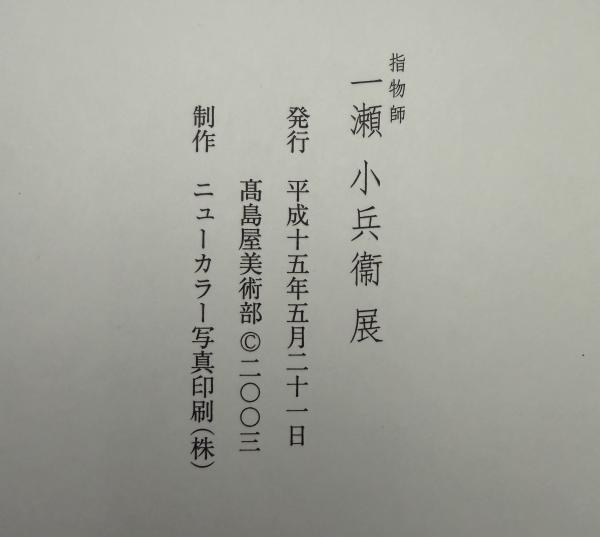 指物師
一瀬 小兵衞 展
発行　平成十五年五月二十一日
髙島屋美術部©二〇〇三
制作　ニューカラー写真印刷(株)